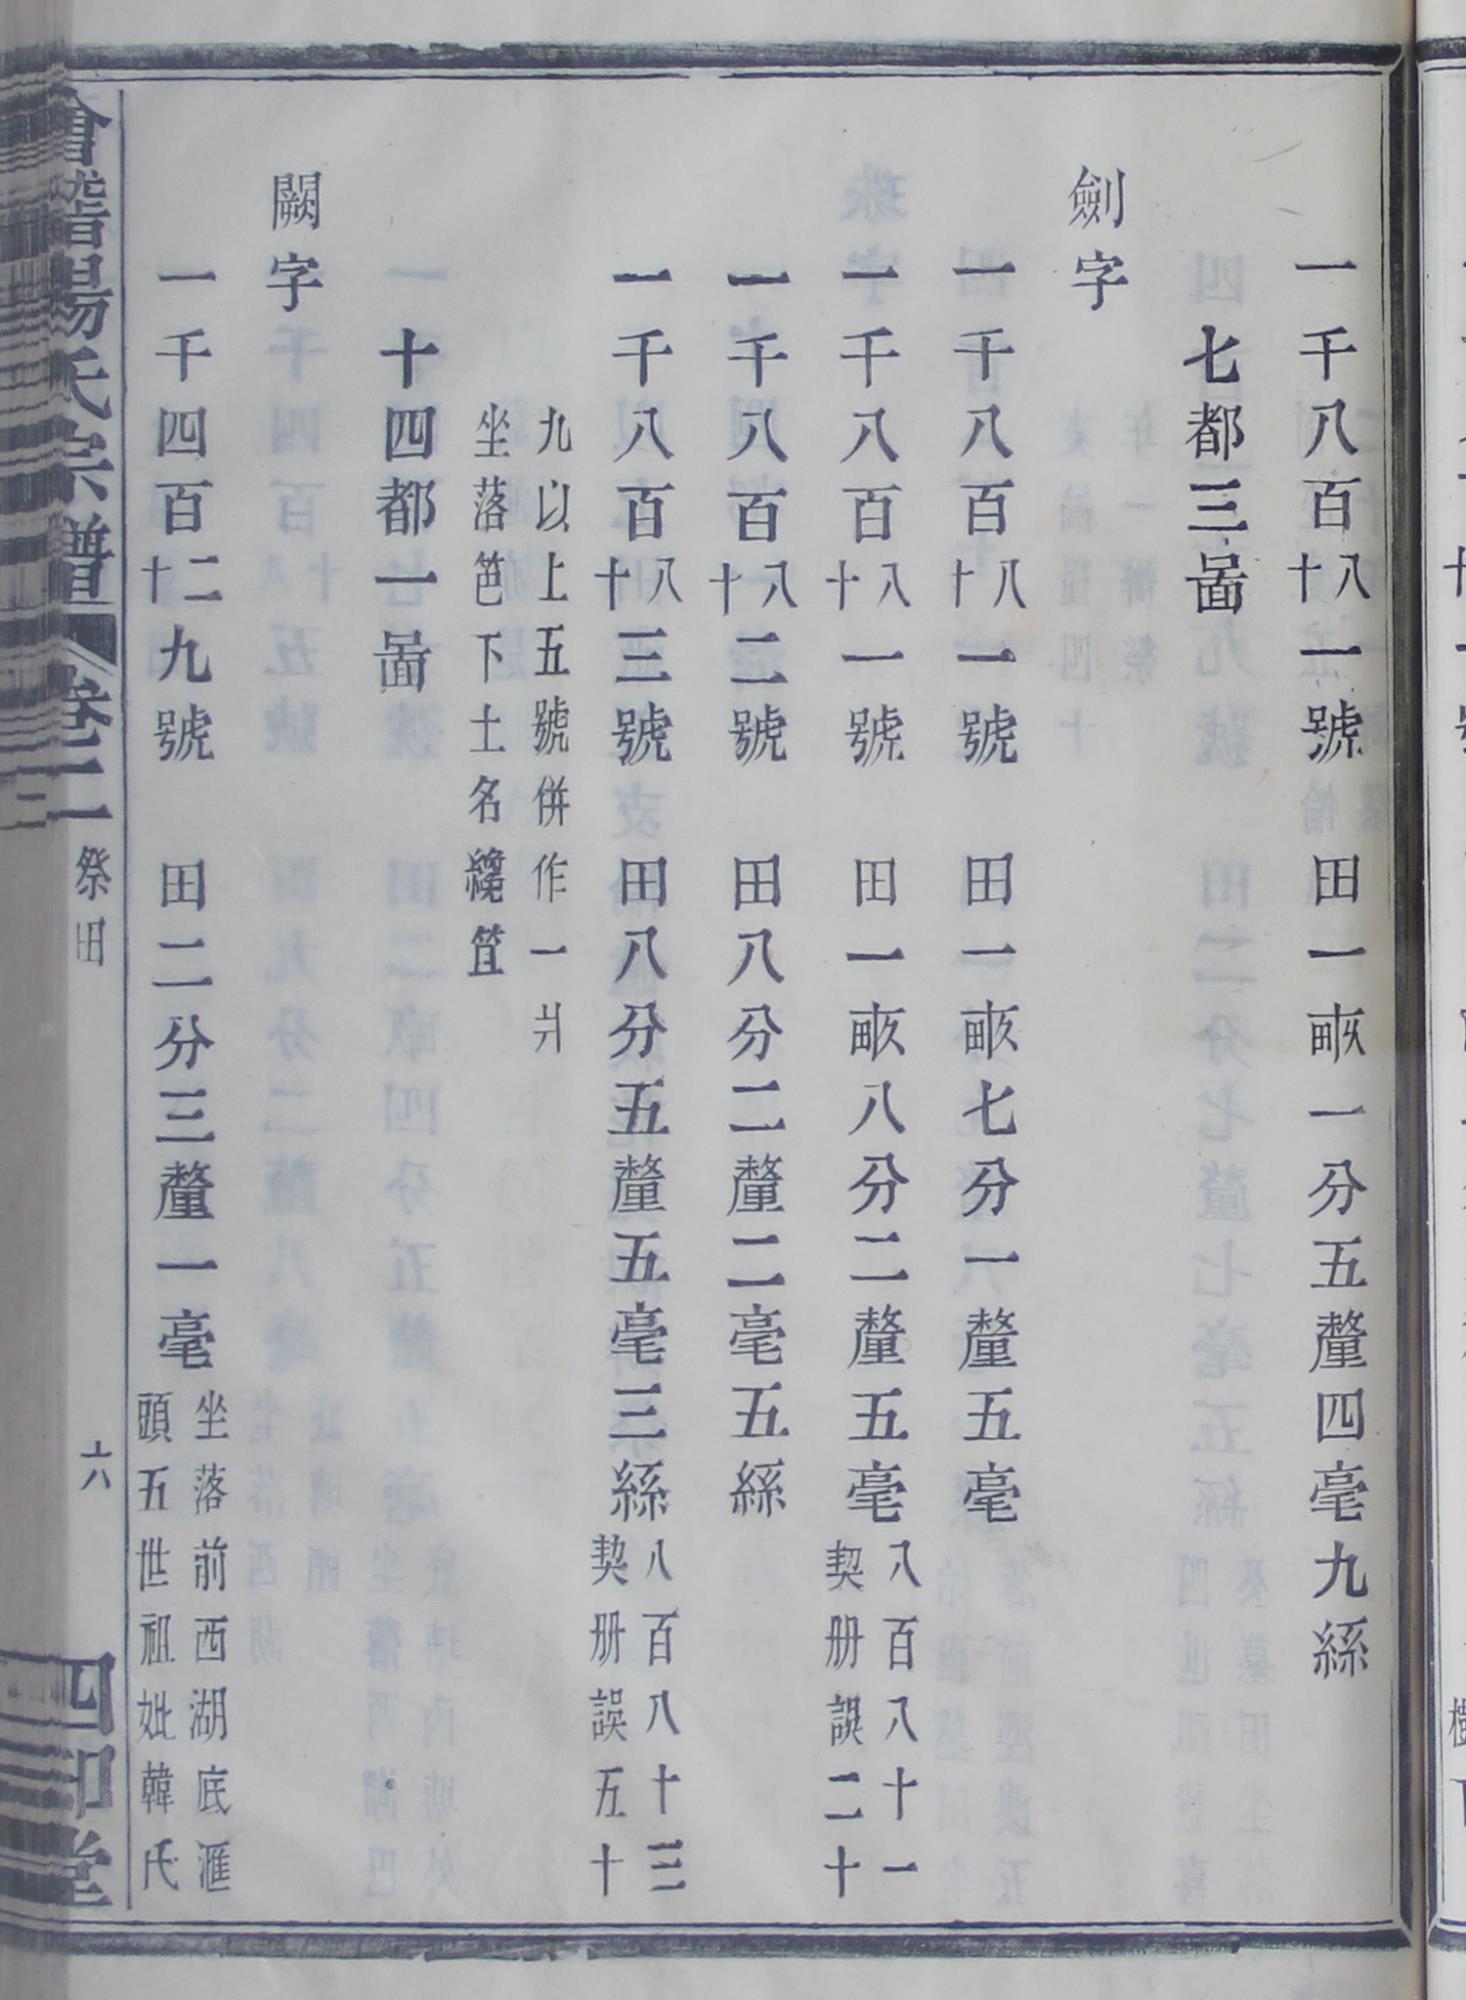 一千八百八十一號　田一畞一分五釐四毫九絲
七都三啚
劍字
一千八百八十一號　田一畞七分一釐五毫
一千八百八十一號　田一畞八分二釐五毫八百八十一契册誤二十
一千八百八十二號　田八分二釐二毫五絲
一千八百八十三號　田八分五釐五毫三絲八百八十三契册誤五十
九以上五號併作一爿
坐落笆下土名纔笡
十四都一啚
闕字
一千四百二十九號　田二分三釐一毫坐落前西湖底滙頭五世祖妣韓氏
會稽楊氏宗譜　卷二　祭田　六　四知堂